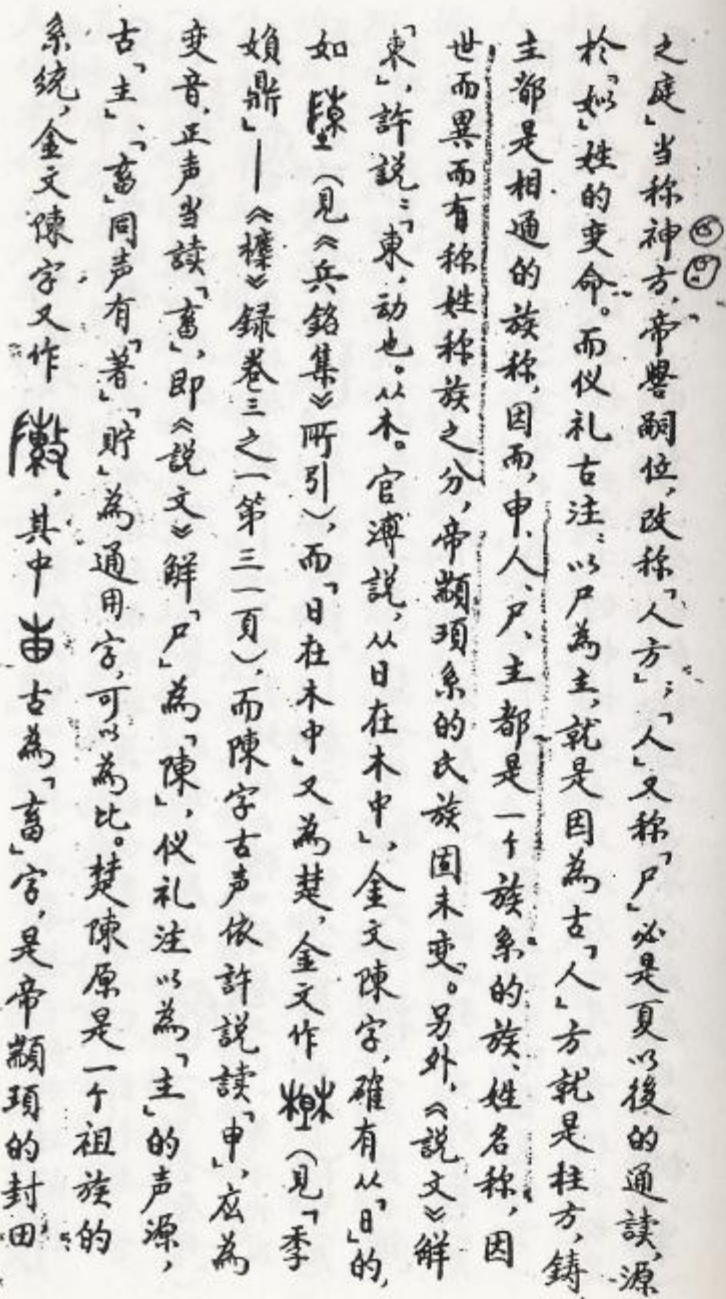 之庭」当称神方,「帝嚳嗣位,改称「人方」;「人」又称「尸」必是夏以後的通讀,源
於「姒」姓的变命。而仪礼古注:以尸為主,就是因為古「人」方就是柱方,鋳
主都是相通的族称,因而,申、人、尸、主都是一个族系的族、姓名称,因
世而異而有称姓称族之分,帝顓頊系的氏族固未变。另外,《説文》解
「東」,許説:「東,动也。从木。官溥説,从日在木中」,金文陳字,確有从「日」的,
如(見《兵銘集》所引),而「日在木中」又為楚,金文作(見「季
媍鼎」——《攈》録卷三之一第三一頁),而陳字古声依許説讀「申」,应為
变音,正声当读「畜」,即《説文》解「尸」為「陳」,仪礼注以為「主」的声源,
古「主」、「畜」同声有「著」「貯」為通用字,可以為比。楚陳原是一个祖族的
系统,金文陳字又作,其中古為「畜」字,是帝顓頊的封田